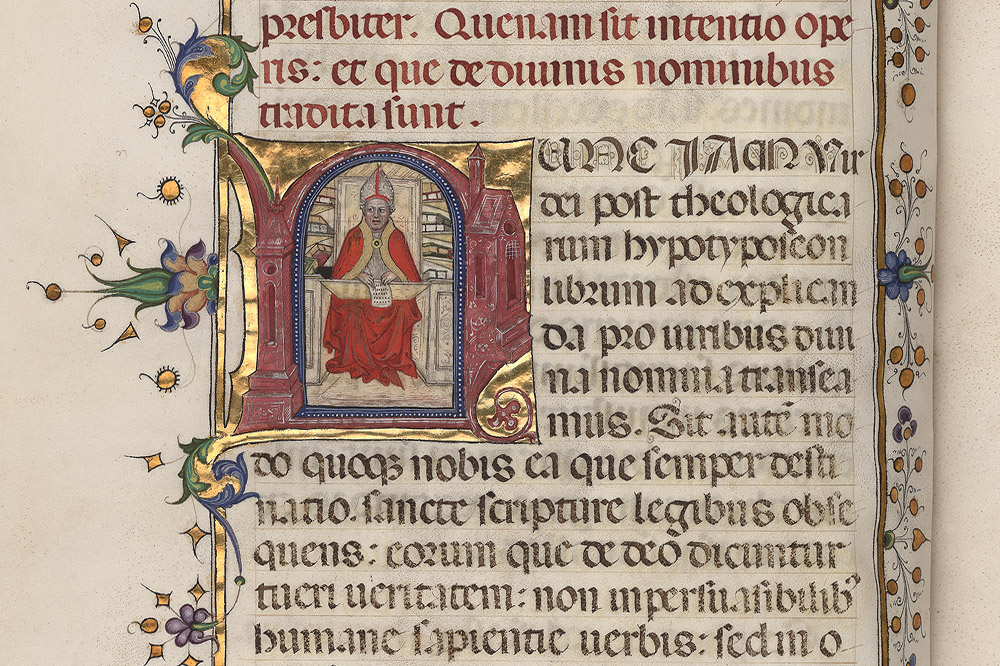 presbiter. Quenam sit intentio ope
ris: et que de diuinis nominibus
tradita sunt.
NUNC IAM Vir
dei post theologica
rum hypotyposeon
librum ad explican
da pro uiribus diui
na nomina transea
mus. Sit autē mo
do quoqꝫ nobis ea que semper desti
natio. sancte scripture legibus obse
quens: eorum que de deo dicuntur
tueri ueritatem: non inpersuasibilibꝰ
humane sapientie uerbis: sed in o